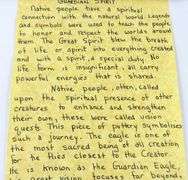 GUARDIAN SPIRIT
Native people have a spiritual
connection with the natural world. Legends
and symbols were used to teach the people
to honor and respect the worlds around
them. The Great Spirit blew the breath
of life or spirit into everything created
and with a spirit, a special duty. No
life form is insignificant, all carry
powerful energies that is shared.
Native people, often, called
upon the spiritual presence of other
creatures to enhance and strengthen
their own, these were called vision
quests. This piece of pottery symbolises
such a journey. The Eagle is one of
the most sacred being of all creation
for he flies closest to the Creator.
is known as the Guardian Eagle,
great vision focuses far beyond